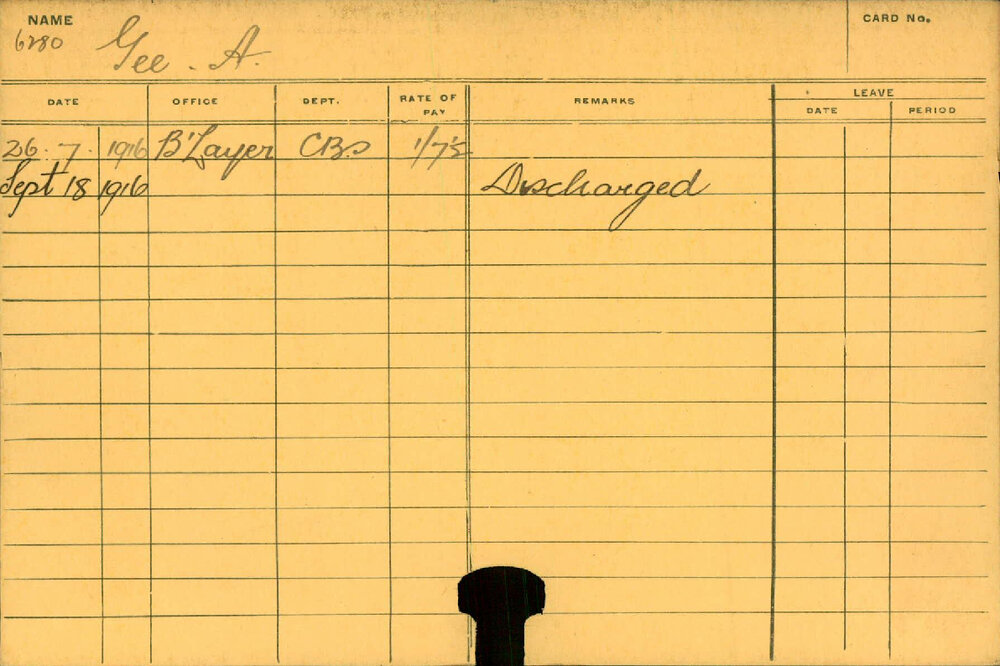 NAME
CARD No.
6280 Gee. A.
DATE OFFICE DEPT. RATE OF PAY REMARKS LEAVE
DATE PERIOD
26.7.1916 B'Layer CBs 1/7½
Sept 18 1916 Discharged